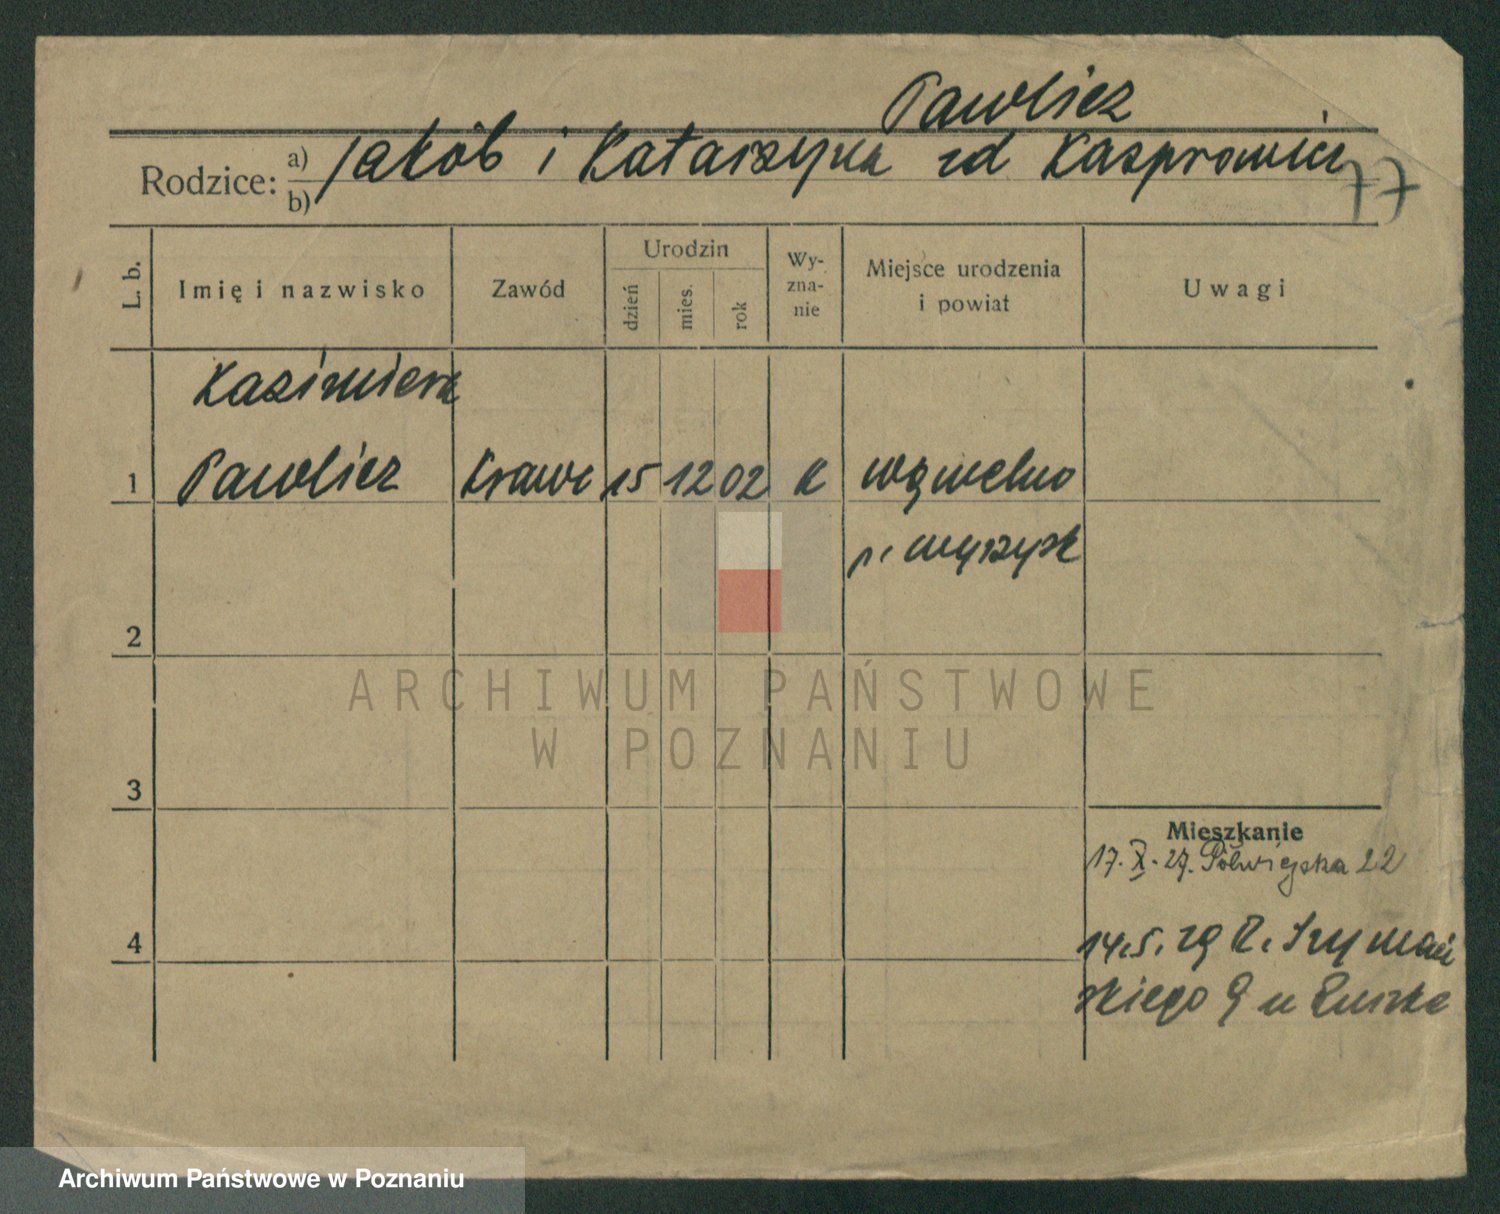 Pawlicz
Rodzice: a) b) Jakób i Katarzyna zd Kasprowicz
77
L. b.
Imię i nazwisko
Zawód
Urodzin
dzień
mies.
rok
Wy-
zna-
nie
Miejsce urodzenia
i powiat
Uwagi
Kazimierz
1 Pawlicz Krawc 15 12 02 K
p. Wyrzysk
2
ARCHIWUM PAŃSTWOWE
W POZNANIU
3
Mieszkanie
17.X.27. Półwiejska 22
4
14.5. R. Szymań
skiego 9 u
Archiwum Państwowe w Poznaniu